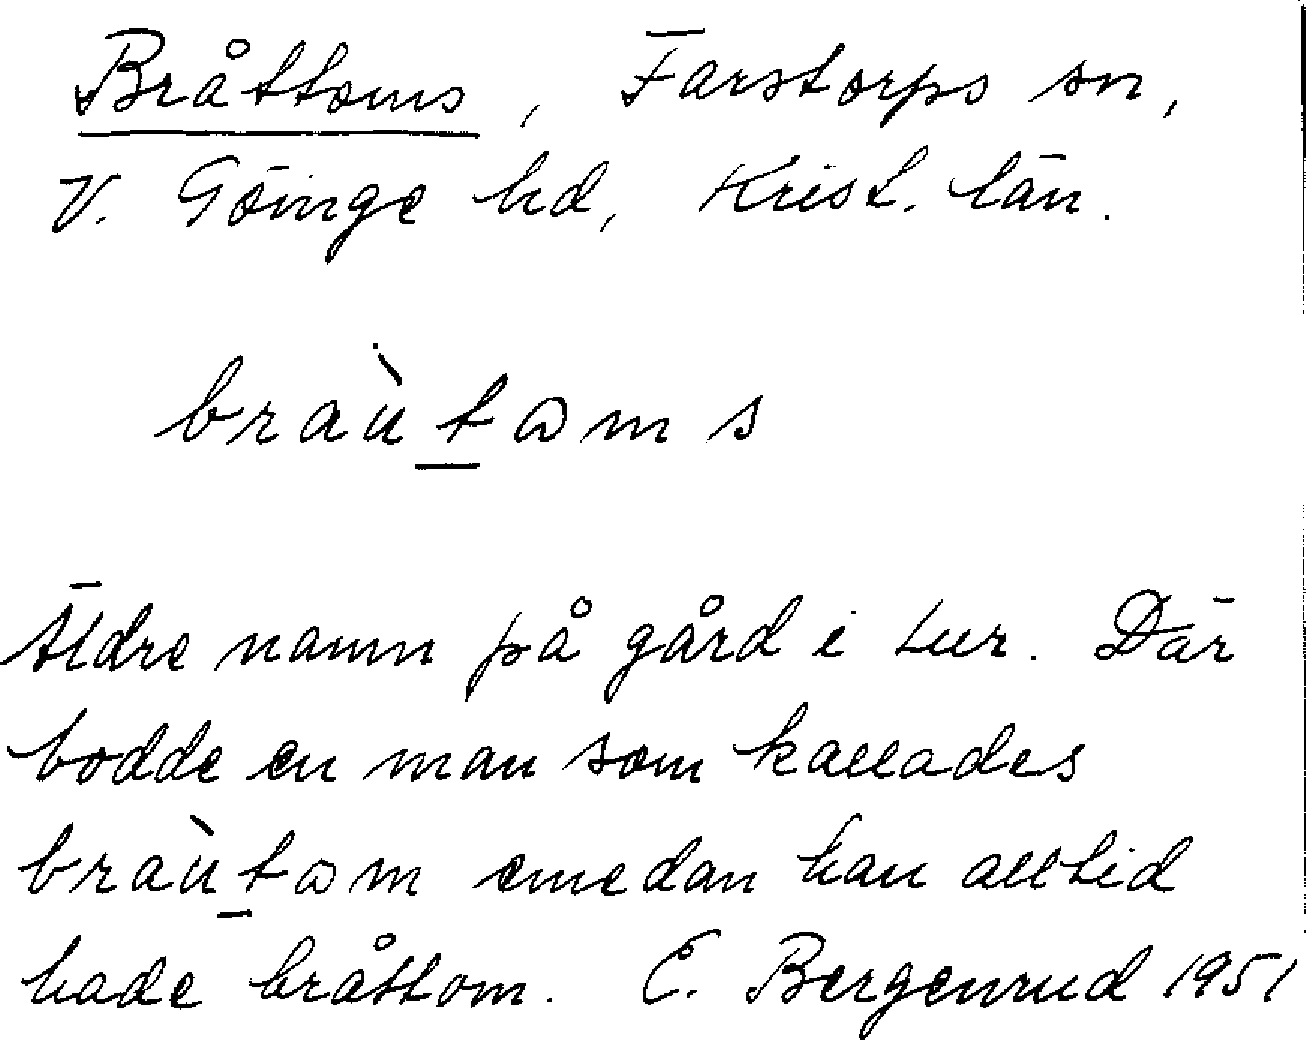 Bråttoms, Farstorps sn,
V. Göinge hd, Krist. län.
braùt̲ɷms
Äldre namn på gård i Lur. Där
bodde en man som kallades
braùt̲ɷm emedan han alltid
hade bråttom. E. Bergenrud 1951